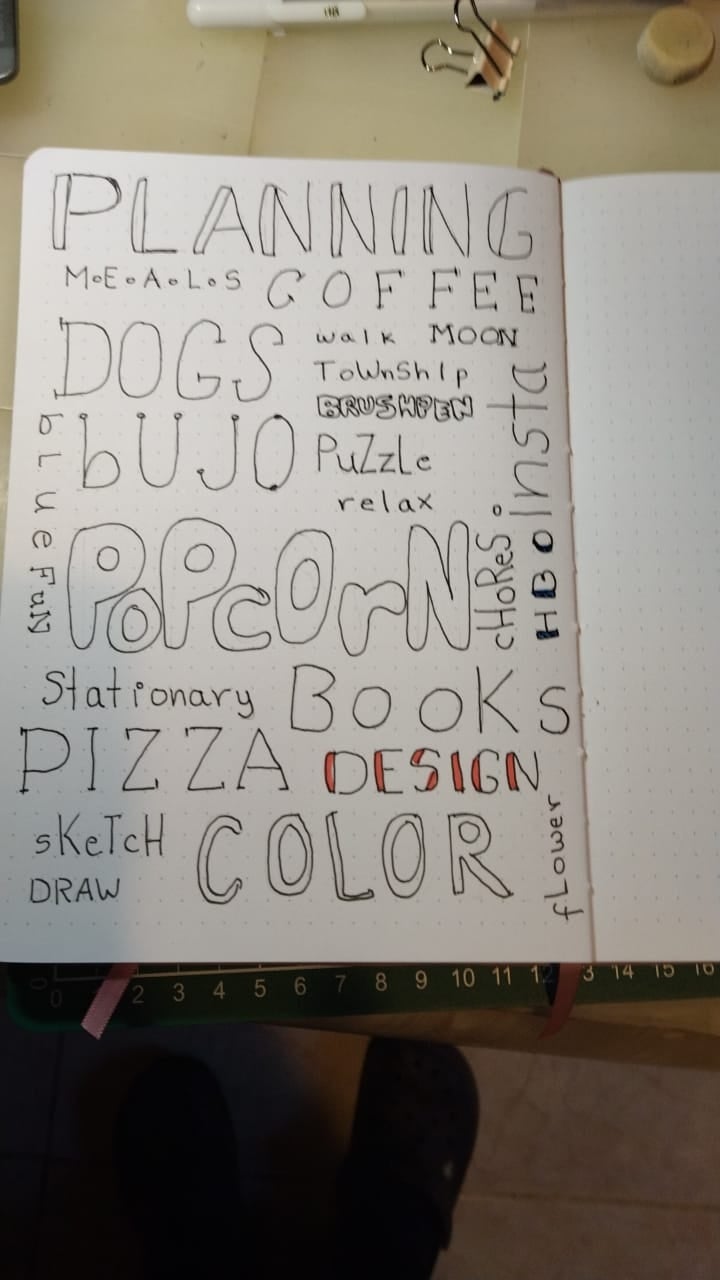 PLANNING
M•E•A•L•S COFFEE
DOGS walk MOON
TownShIp
BRUSHPEN
Insta
bUJO PuZzLe
relax
bLueFuly
PoPcOrN
cHoReS
HBO
Stationary BooKs
PIZZA DESIGN
sKeTcH COLOR
DRAW
fLower
0 2 3 4 5 6 7 8 9 10 11 12 3 14 15 16